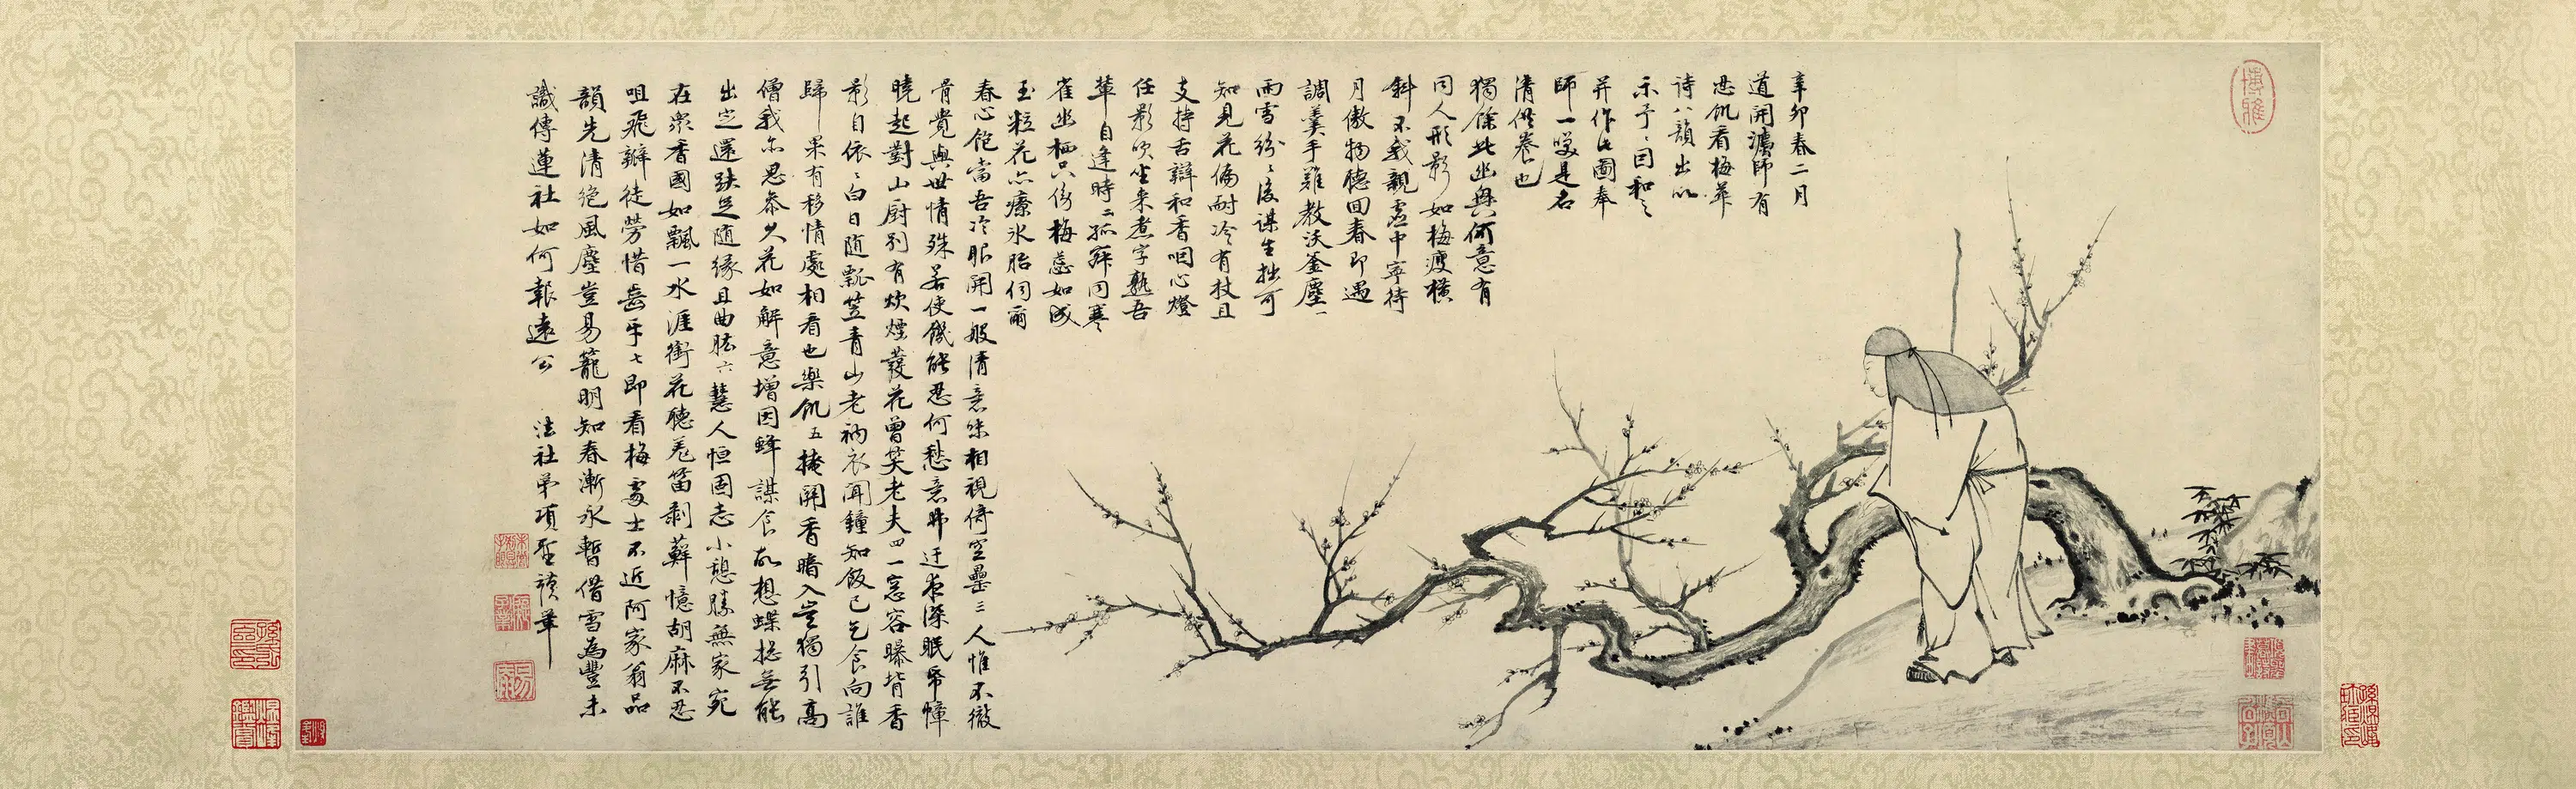 辛卯春二月
道開灋師有
忍飢看梅華
詩八韻出以
示予〻因和之
并作此圖奉
師一噱是名
清供養也
獨餘此幽興何意有
同人形影如梅瘦橫
斜不我親虛中寧待
月傲物聽回春即遇
調羹手難教沃釜塵一
雨雪紛〻後謀生拙可
知見花偏耐冷有技且
支持舌辯和香咽心燈
任影吹坐來煮字熟吾
輩自逢時二孤寐同寒
雀幽栖只傍梅蕊如成
玉粒花亦療冰胎伺爾
春心飽當吾冷眼開一般清意味相視倚空罍三人惟不徹
骨覺與世情殊若使饑能忍何愁意弗迂夜深眠帋幛
曉起對山厨別有炊煙發花曾笑老夫四一窓容曝背香
影自依〻白日随瓢笠青山老衲衣聞鐘知飯已乞食向誰
歸果有移情處相看也樂飢五掩關香暗入豈獨引高
僧我亦思參久花如解意增因蜂謀食故想蝶挹無能
出定還趺足随緣且曲肱六慧人恒固志小憩勝無家宛
在眾香國如飄一水涯銜花聽羌笛剥蘚憶胡麻不忍
咀飛瓣徒勞惜齒牙七即看梅處士不近阿家翁品
韻先清絕風塵豈易籠明知春漸永暫借雪為豐未
識傳蓮社如何報遠公 法社弟項聖謨草
博雅